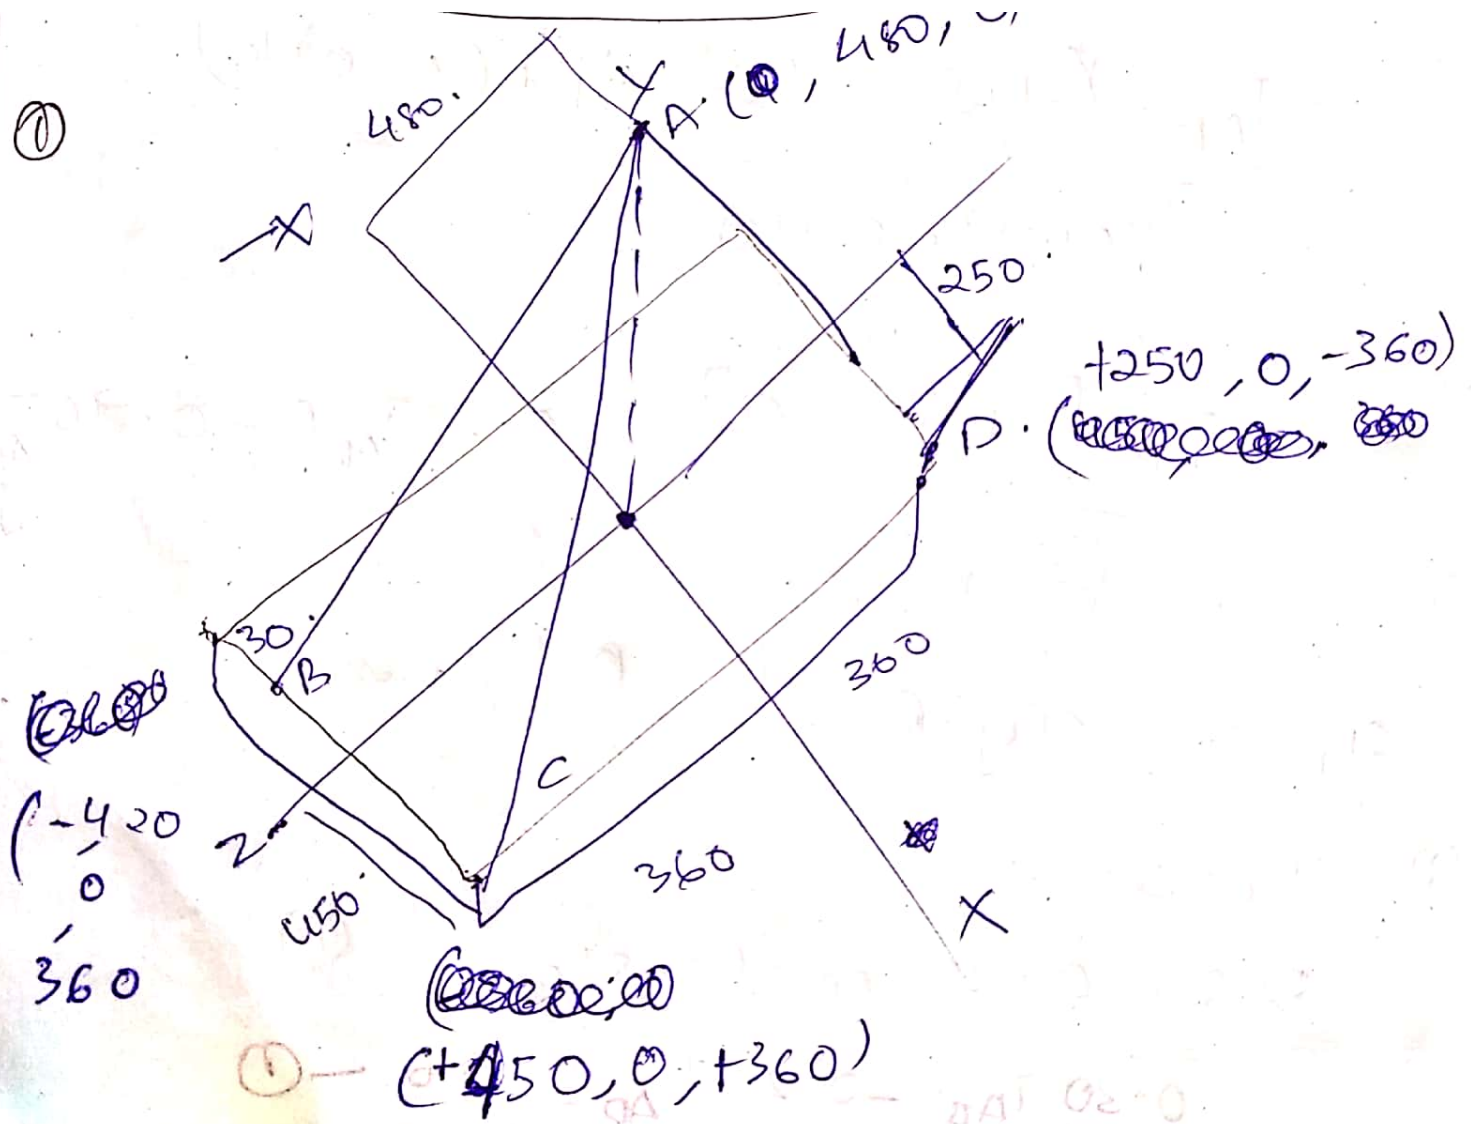 ①
480.
Y
A. (0, 480, 0,
X
250
+250, 0, -360)
D. (
30.
B
360
C
(-420
,
0
,
360
Z
450.
360
X
(+450, 0, +360)
①